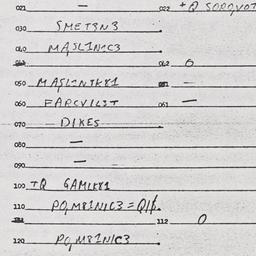 021 — 022 + Q SOROVOT
030 SMETSN3
040 MASLINIC3
042 0
050 MASLINTK81 051 —
060 FARCVILST 061 —
070 — DIKES
080 —
090 —
100 TQ GAMLK81
110 PO, M81NIC3 = Q1$.
112 0
120 PO, M81NIC3